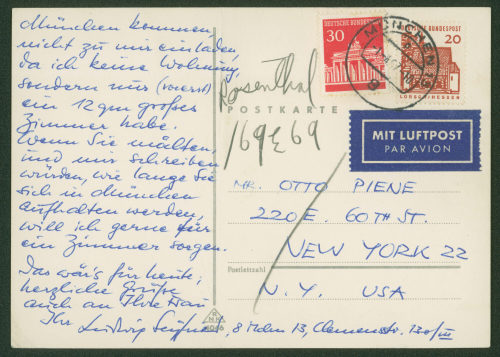 München kommen,
nicht zu mir einladen,
da ich keine Wohnung,
sondern nur (vorerst)
ein 12 qm großes
Zimmer habe.
Wenn Sie
und mir schreiben
würden, wie lange Sie
sich in München
aufhalten werden,
will ich gerne für
ein Zimmer sorgen.
Das wär's für heute;
herzliche Grüße
auch an Ihre Frau
Ihr Ludwig
8 Mchn 13, Clemensstr.
Rosenthal
POSTKARTE
DEUTSCHE BUNDESPOST
30
MÜNCHEN
8
DEUTSCHE BUNDESPOST
20
LORSCH/HESSEN
MIT LUFTPOST
PAR AVION
MR. OTTO PIENE
220 E. 60TH ST.
NEW YORK 22
Postleitzahl
N.Y. USA